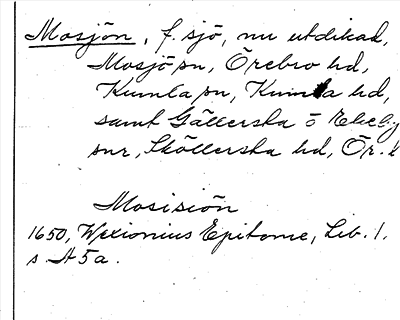 Mosjön, f. sjö, nu utdikad,
Mosjö sn, Örebro hd,
Kumla sn, Kumla hd,
samt Gällersta o Ekeby
snr, Sköllersta hd, Ör. l
Mosisiön
1650, Wexionius Epitome, Lib. 1,
s. A 5 a.